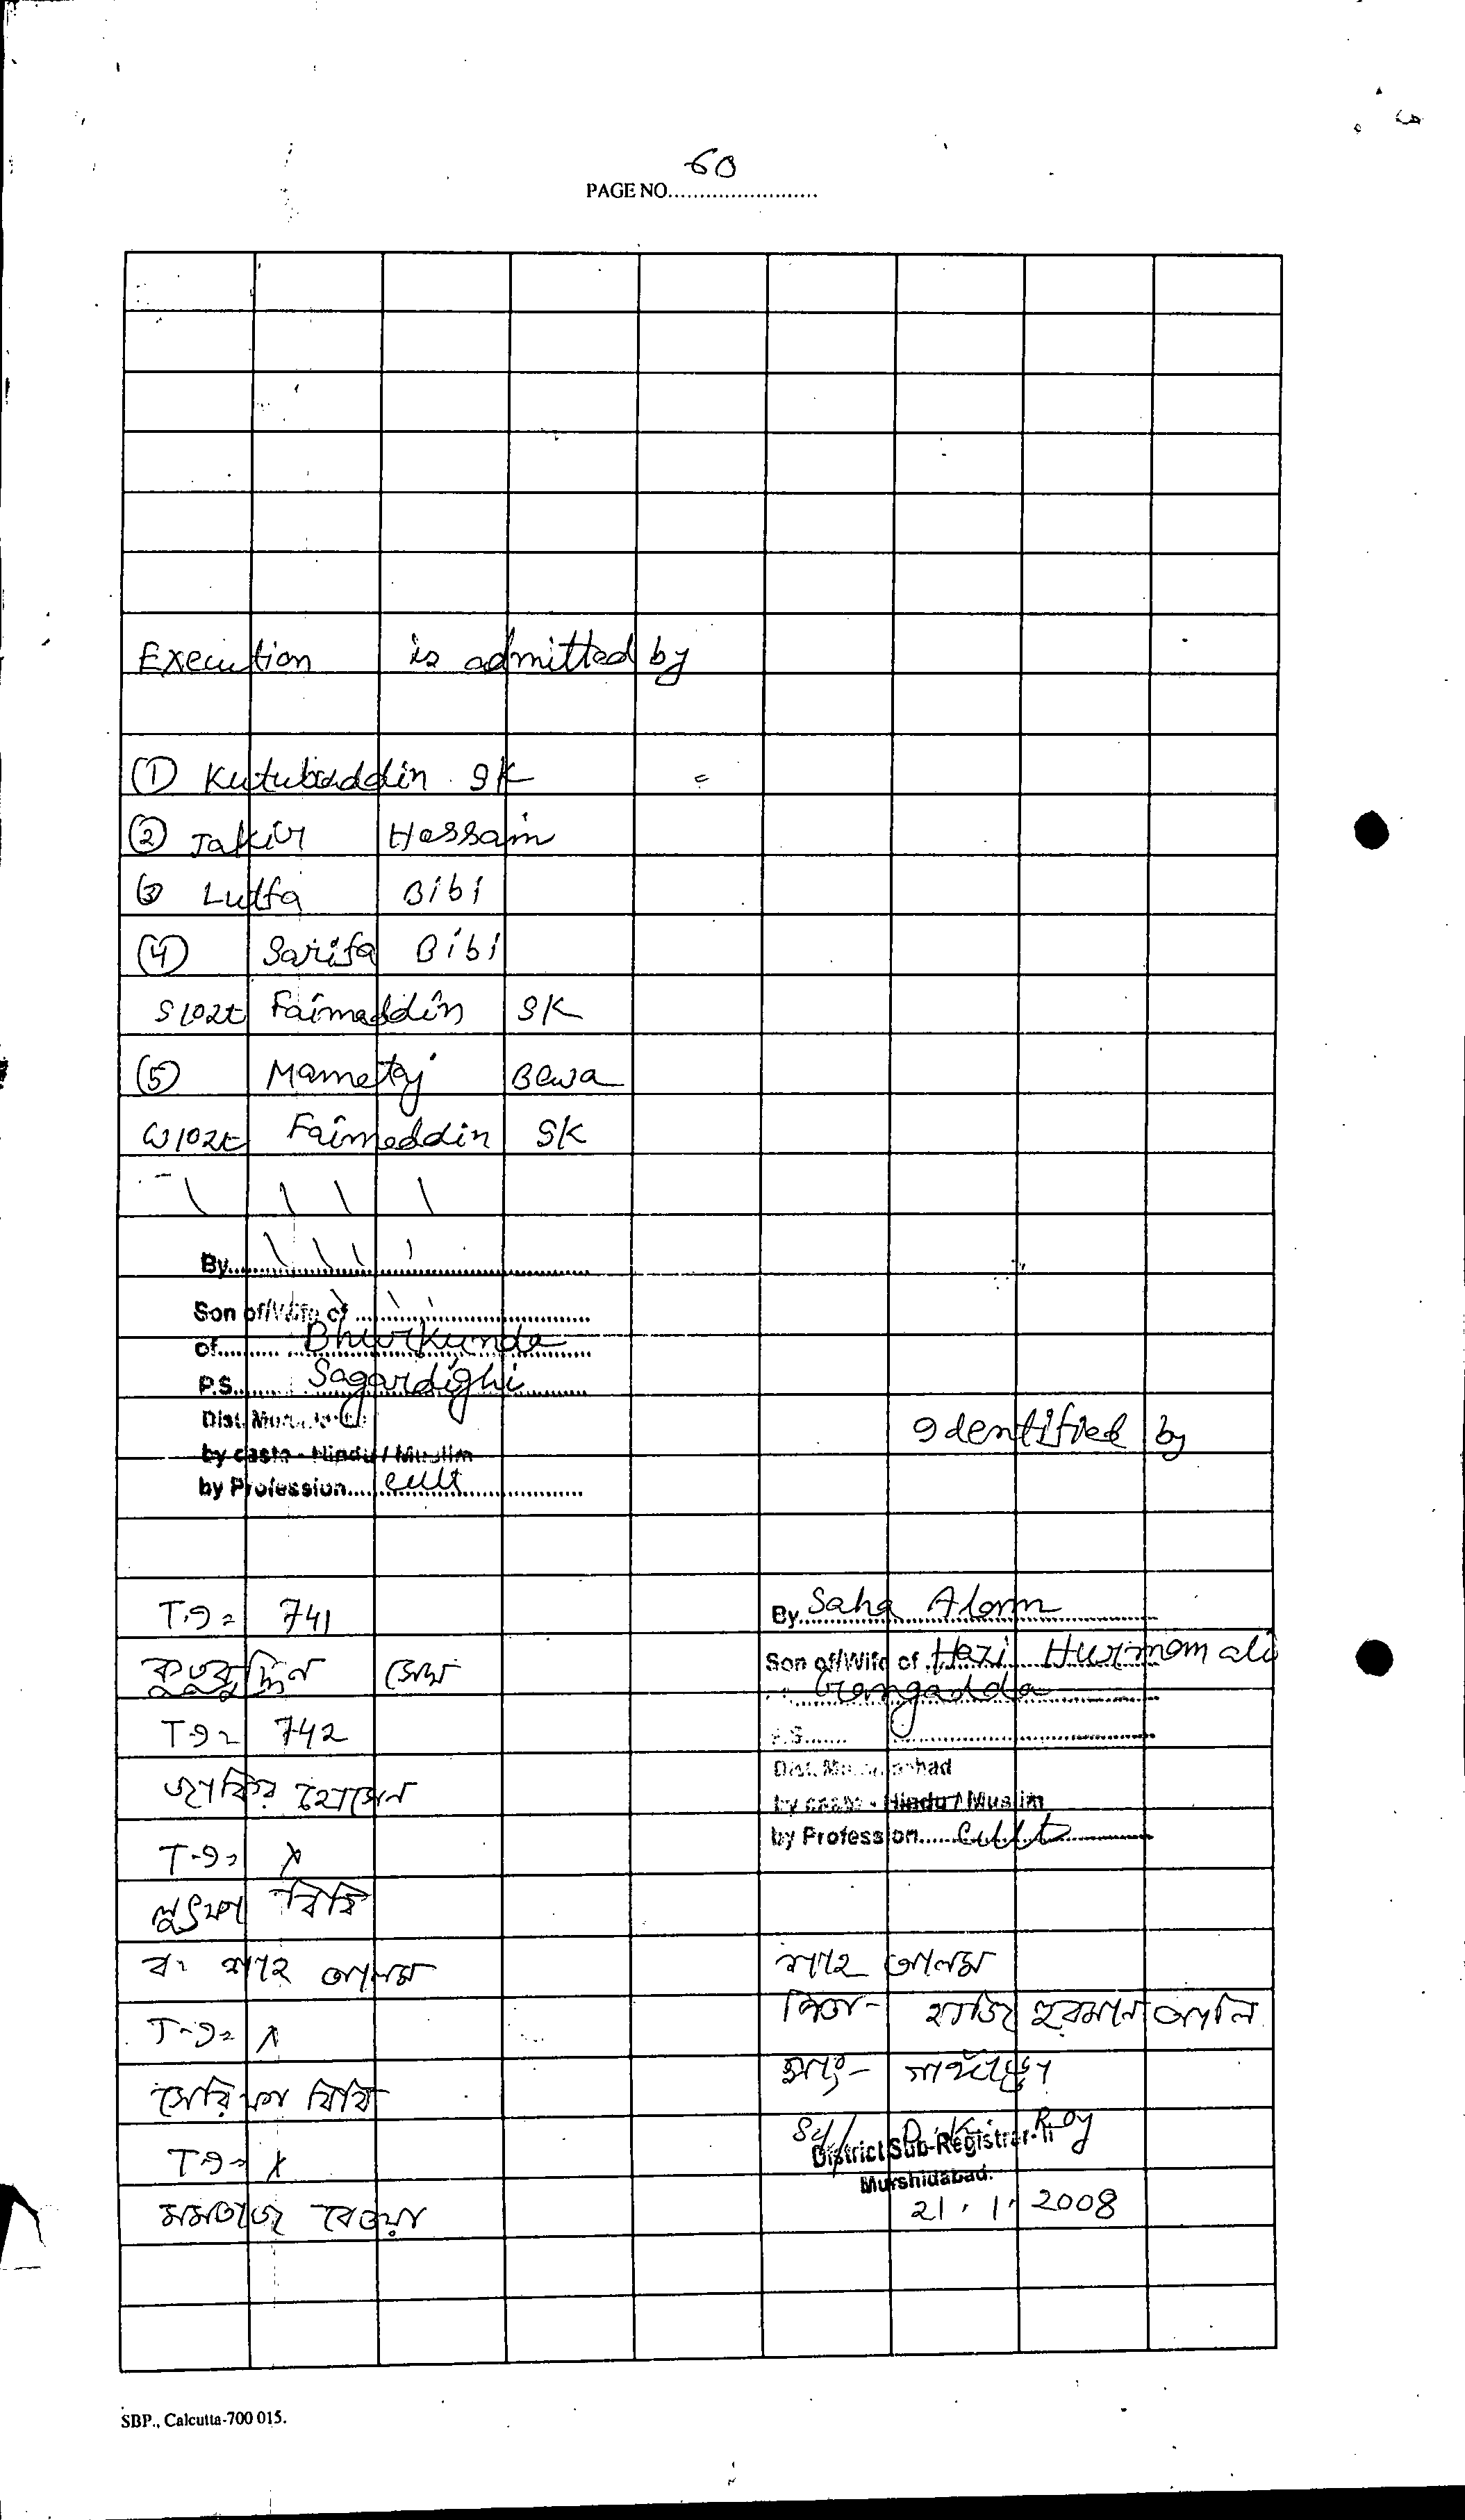 60
PAGE NO........................
Execution is admitted by
① Kutubuddin SK
② Jakir Hossain
③ Lutfa Bibi
④ Sarifa Bibi
S/O Late Faimaddin SK
⑤ Mametaj Bewa
W/O Late Faimeddin SK
By
Son of/Wife of
of Bhurkunda
P.S. Sagardighi
Dist.
by caste - Hindu / Muslim
by Profession cult
Identified by
T.I= 741
কুতুবুদ্দিন সেখ
T.I= 742
জাকির হোসেন
T.I= X
লুৎফা বিবি
ব: শাহ আলম
T.I= X
সেরিফা বিবি
T.I= X
মমতাজ বেওয়া
By Saha Alam
Son of/Wife of Hazi Hurmom ali
Gangadda
P.S.
Dist.
by caste - Hindu / Muslim
by Profession Cult
শাহ আলম
পিতা- হাজি হুরমান আলি
সাং-
Sd/ D. K. Roy
District Sub-Registrar-II
Murshidabad.
21.1.2008
SBP., Calcutta-700 015.